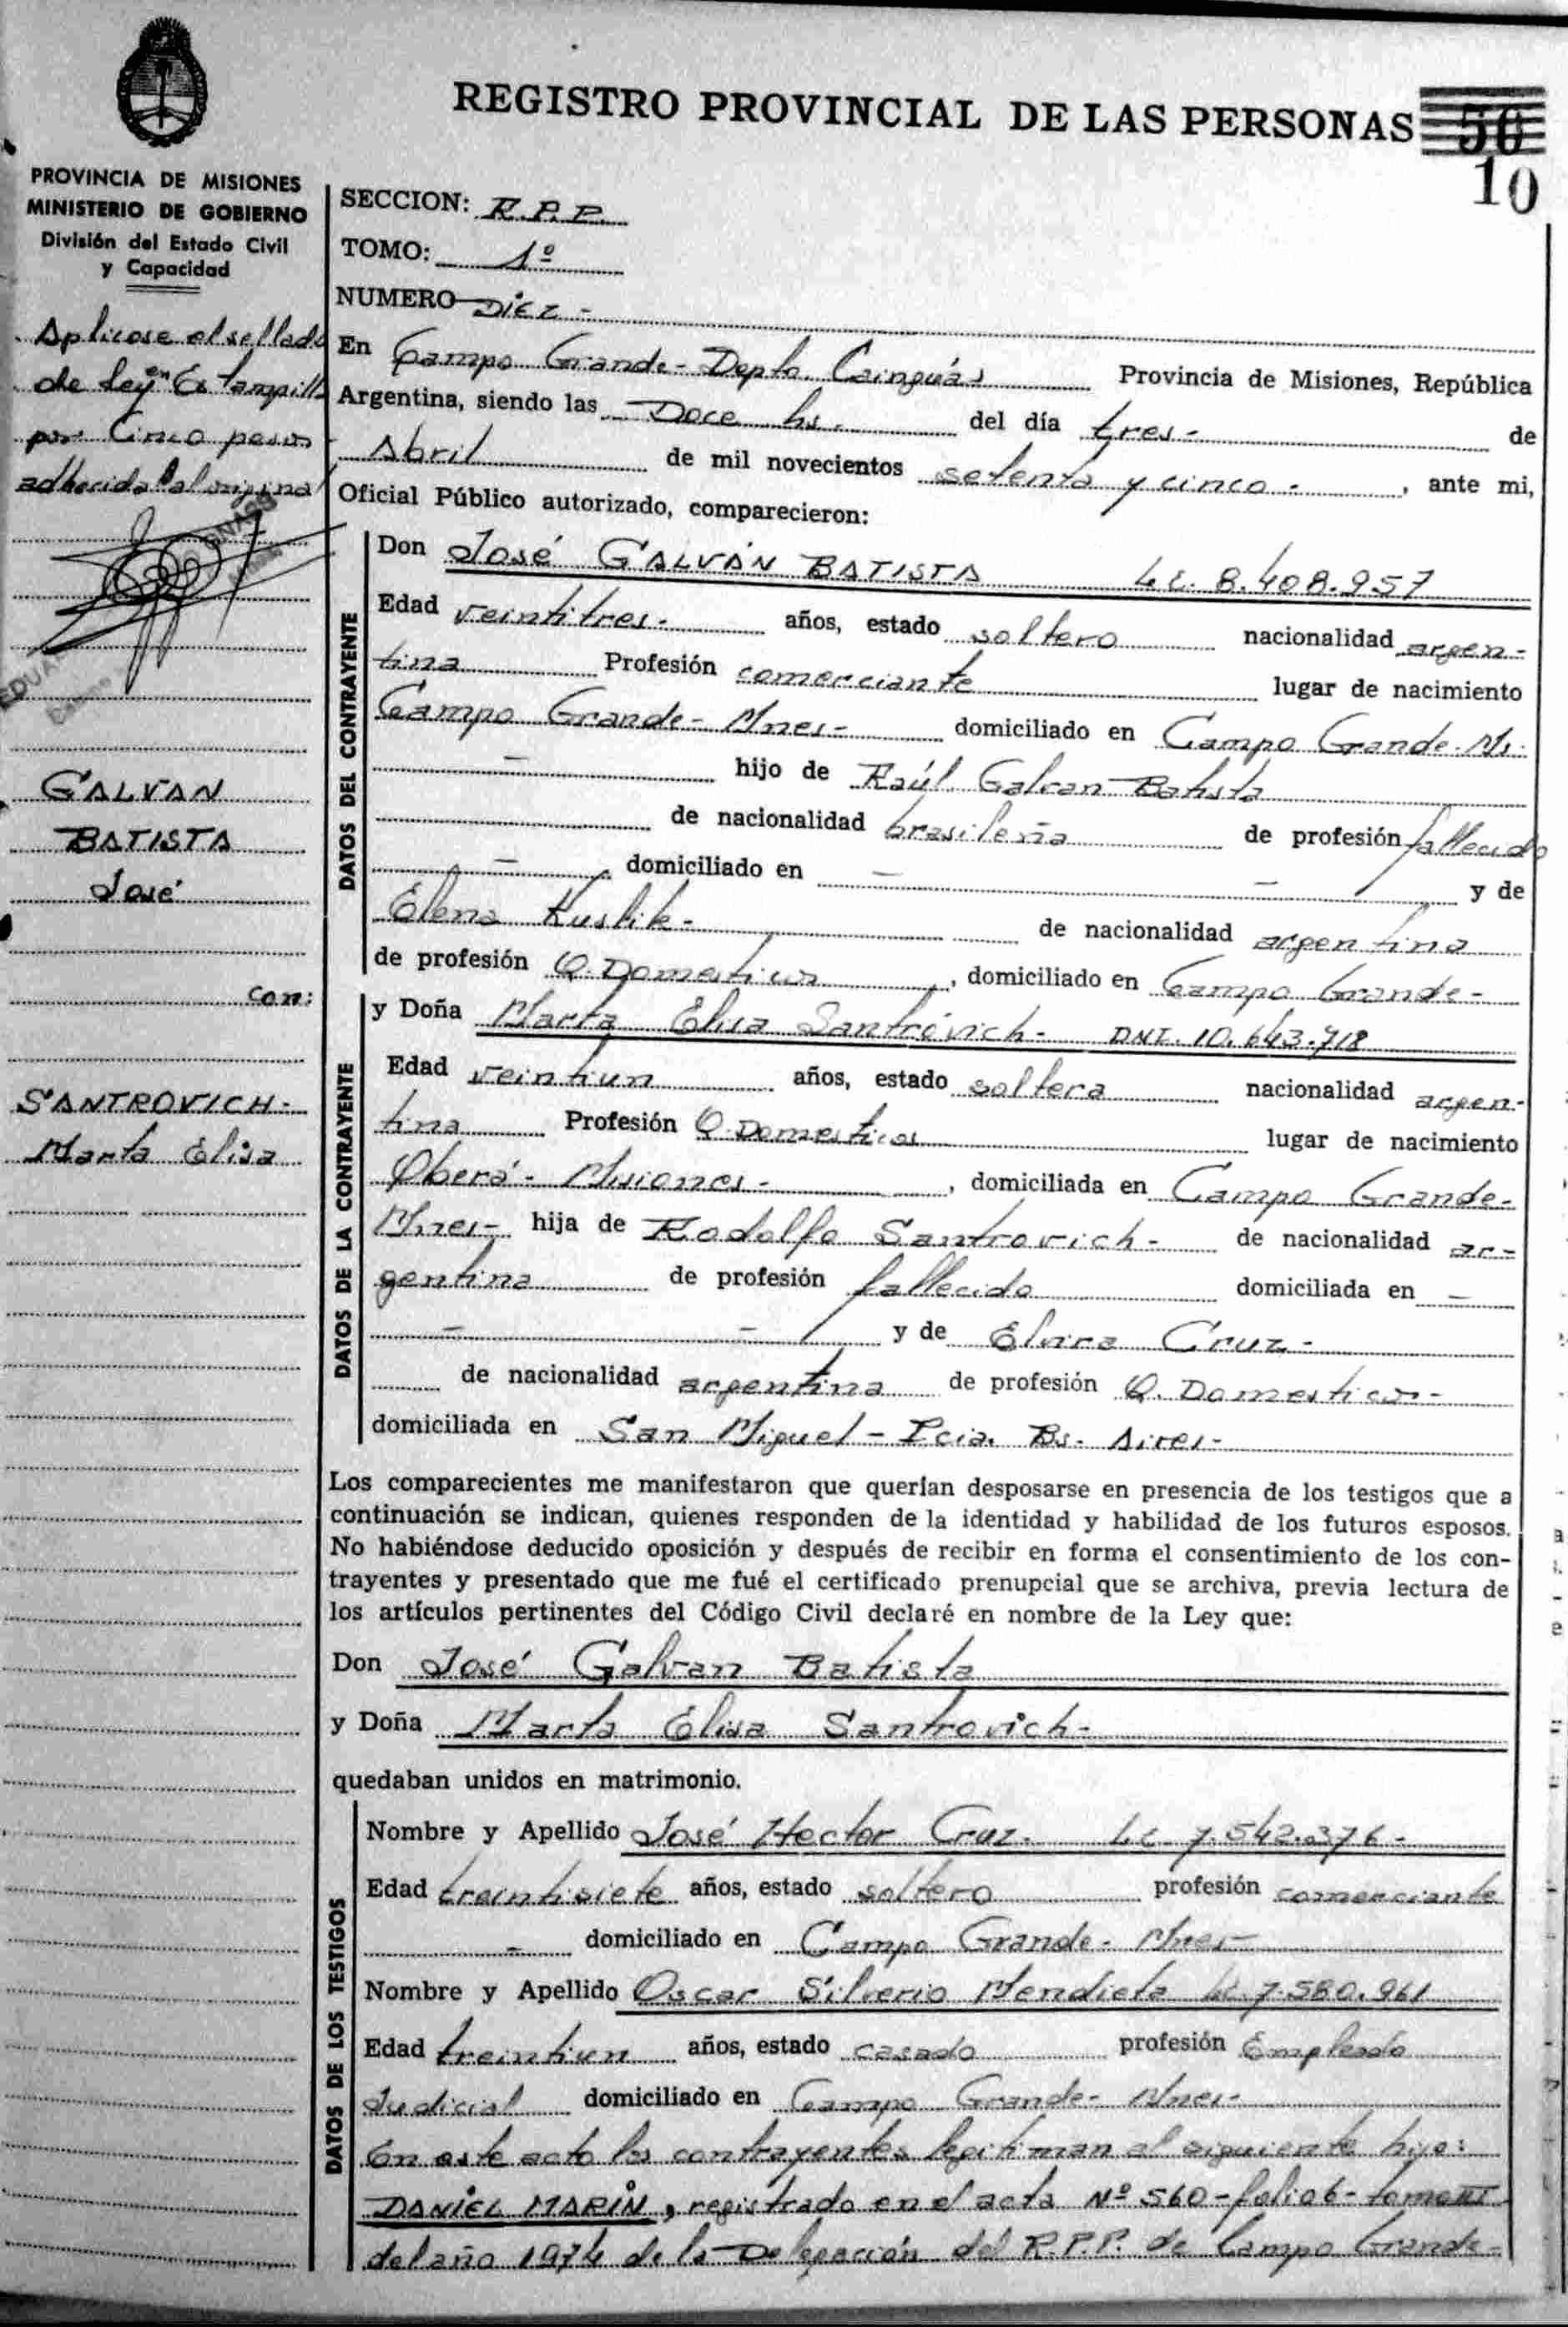 REGISTRO PROVINCIAL DE LAS PERSONAS
56
10
PROVINCIA DE MISIONES
MINISTERIO DE GOBIERNO
División del Estado Civil
y Capacidad
Aplicose el sellado
de ley en Estampilla
por Cinco pesos
adherida al original
GALVAN
BATISTA
José
con:
SANTROVICH-
Marta Elisa
SECCION: R.P.P.
TOMO: 1º
NUMERO Diez -
En Campo Grande - Depto Cainguás Provincia de Misiones, República
Argentina, siendo las Doce hs. del día tres - de
Abril de mil novecientos setenta y cinco - , ante mi,
Oficial Público autorizado, comparecieron:
DATOS DEL CONTRAYENTE
Don José GALVÁN BATISTA L.E. 8.408.957
Edad veintitres - años, estado soltero nacionalidad argen-
tina Profesión comerciante lugar de nacimiento
Campo Grande - Mnes - domiciliado en Campo Grande - Ms.
- hijo de Raúl Galvan Batista
de nacionalidad brasileña de profesión fallecido
- domiciliado en - - y de
Elena Kuslik - de nacionalidad argentina
de profesión Q. Domesticos , domiciliado en Campo Grande -
DATOS DE LA CONTRAYENTE
y Doña Marta Elisa Santróvich - DNI. 10.643.718
Edad veintiun años, estado soltera nacionalidad argen-
tina Profesión Q. Domesticos lugar de nacimiento
Oberá - Misiones - , domiciliada en Campo Grande -
Mnes - hija de Rodolfo Santrovich - de nacionalidad ar-
gentina de profesión fallecido domiciliada en -
- - y de Elvira Cruz -
de nacionalidad argentina de profesión Q. Domesticos -
domiciliada en San Miguel - Pcia. Bs. Aires -
Los comparecientes me manifestaron que querían desposarse en presencia de los testigos que a
continuación se indican, quienes responden de la identidad y habilidad de los futuros esposos.
No habiéndose deducido oposición y después de recibir en forma el consentimiento de los con-
trayentes y presentado que me fué el certificado prenupcial que se archiva, previa lectura de
los artículos pertinentes del Código Civil declaré en nombre de la Ley que:
Don José Galvan Batista
y Doña Marta Elisa Santrovich -
quedaban unidos en matrimonio.
DATOS DE LOS TESTIGOS
Nombre y Apellido José Hector Cruz. L.E. 7.542.376 -
Edad treintisiete años, estado soltero profesión comerciante
- domiciliado en Campo Grande - Mnes -
Nombre y Apellido Oscar Silverio Mendieta L.E. 7.580.961
Edad treintiun años, estado casado profesión Empleado
Judicial domiciliado en Campo Grande - Mnes -
En este acto los contrayentes legitiman al siguiente hijo:
DANIEL MARIN, registrado en el acta Nº 560 - folio 6 - tomo III
del año 1974 de la Delegación del R.P.P. de Campo Grande -